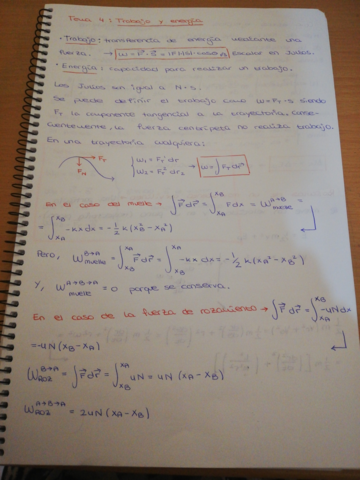 Tema 4: Trabajo y energía
· Trabajo: transferencia de energía mediante una
fuerza. → W = F⃗ · r⃗ = |F| |r| · cosα Escalar en Julios.
· Energía: capacidad para realizar un trabajo.
Los Julios son igual a N·s.
Se puede definir el trabajo como W = F_T · s siendo
F_T la componente tangencial a la trayectoria, conse-
cuentemente, la fuerza centrípeta no realiza trabajo.
En una trayectoria cualquiera:
F_T F_N W₁ = F_T · dr₁ → W = ∫ F_T dr
W₂ = F_T² · dr₂
En el caso del muelle → ∫ F⃗ dr⃗ = ∫_{x_A}^{x_B} F dx = W_{muelle}^{A→B} =
= ∫_{x_A}^{x_B} -kx dx = -1/2 k (x_B² - x_A²)
Pero, W_{muelle}^{B→A} = ∫_{x_B}^{x_A} F⃗ dr⃗ = ∫_{x_B}^{x_A} -kx dx = -1/2 k (x_A² - x_B²)
Y, W_{muelle}^{A→B→A} = 0 porque se conserva.
En el caso de la fuerza de rozamiento → ∫ F⃗ dr⃗ = ∫_{x_A}^{x_B} -uN dx
= -uN (x_B - x_A)
W_{roz}^{B→A} = ∫ F⃗ dr⃗ = ∫_{x_B}^{x_A} uN = uN (x_A - x_B)
W_{roz}^{A→B→A} = 2uN (x_A - x_B)